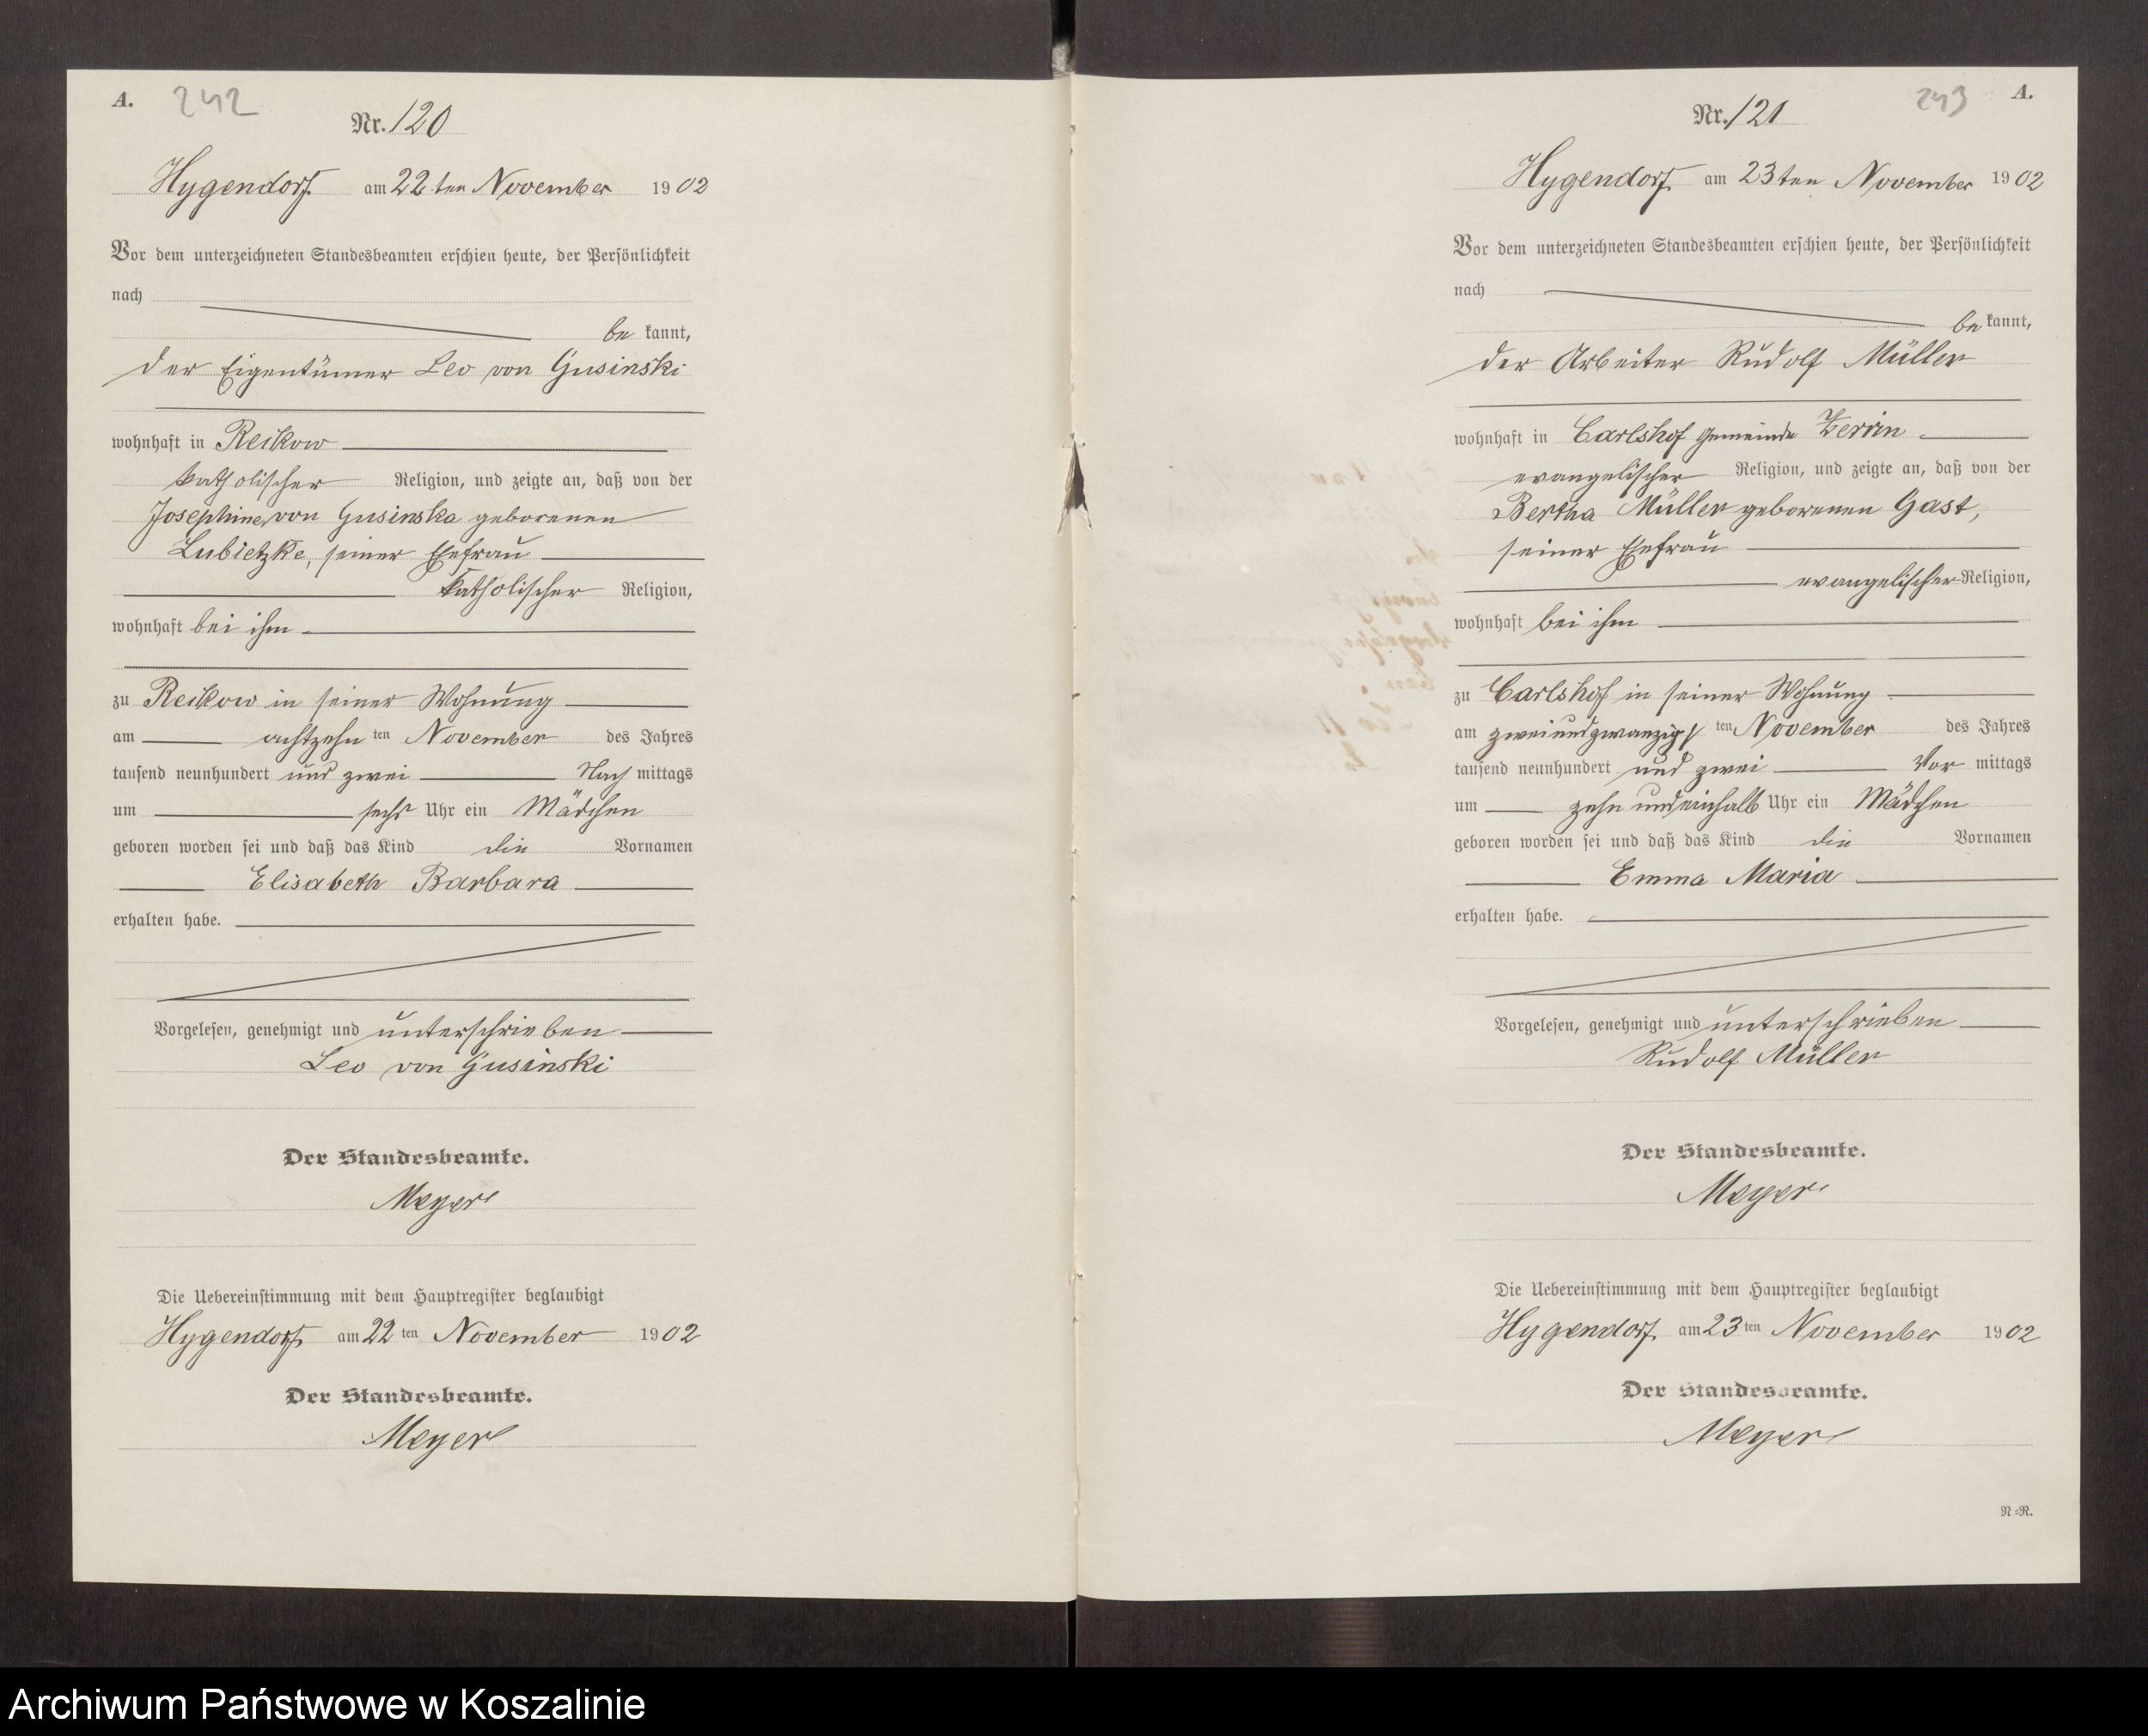 A. 242
Nr. 120
Hygendorf am 22ten November 1902
Vor dem unterzeichneten Standesbeamten erschien heute, der Persönlichkeit
nach
be kannt,
der Eigentümer Leo von Gusinski
wohnhaft in Reikow
katholischer Religion, und zeigte an, daß von der
Josephine von Gusinska geborenen
Lubietzke, seiner Ehefrau
katholischer Religion,
wohnhaft bei ihm
zu Reikow in seiner Wohnung
am achtzehn ten November des Jahres
tausend neunhundert und zwei Nach mittags
um sechs Uhr ein Mädchen
geboren worden sei und daß das Kind die Vornamen
Elisabeth Barbara
erhalten habe.
Vorgelesen, genehmigt und unterschrieben
Leo von Gusinski
Der Standesbeamte.
Meyer
Die Uebereinstimmung mit dem Hauptregister beglaubigt
Hygendorf am 22 ten November 1902
Der Standesbeamte.
Meyer
243 A.
Nr. 121
Hygendorf am 23ten November 1902
Vor dem unterzeichneten Standesbeamten erschien heute, der Persönlichkeit
nach
be kannt,
der Arbeiter Rudolf Müller
wohnhaft in Carlshof Gemeinde Zerrin
evangelischer Religion, und zeigte an, daß von der
Bertha Müller geborenen Gast,
seiner Ehefrau
evangelischer Religion,
wohnhaft bei ihm
zu Carlshof in seiner Wohnung
am zweiundzwanzigs ten November des Jahres
tausend neunhundert und zwei Vor mittags
um zehn und einhalb Uhr ein Mädchen
geboren worden sei und daß das Kind die Vornamen
Emma Maria
erhalten habe.
Vorgelesen, genehmigt und unterschrieben
Rudolf Müller
Der Standesbeamte.
Meyer
Die Uebereinstimmung mit dem Hauptregister beglaubigt
Hygendorf am 23 ten November 1902
Der Standesbeamte.
Meyer
N=R.
Archiwum Państwowe w Koszalinie